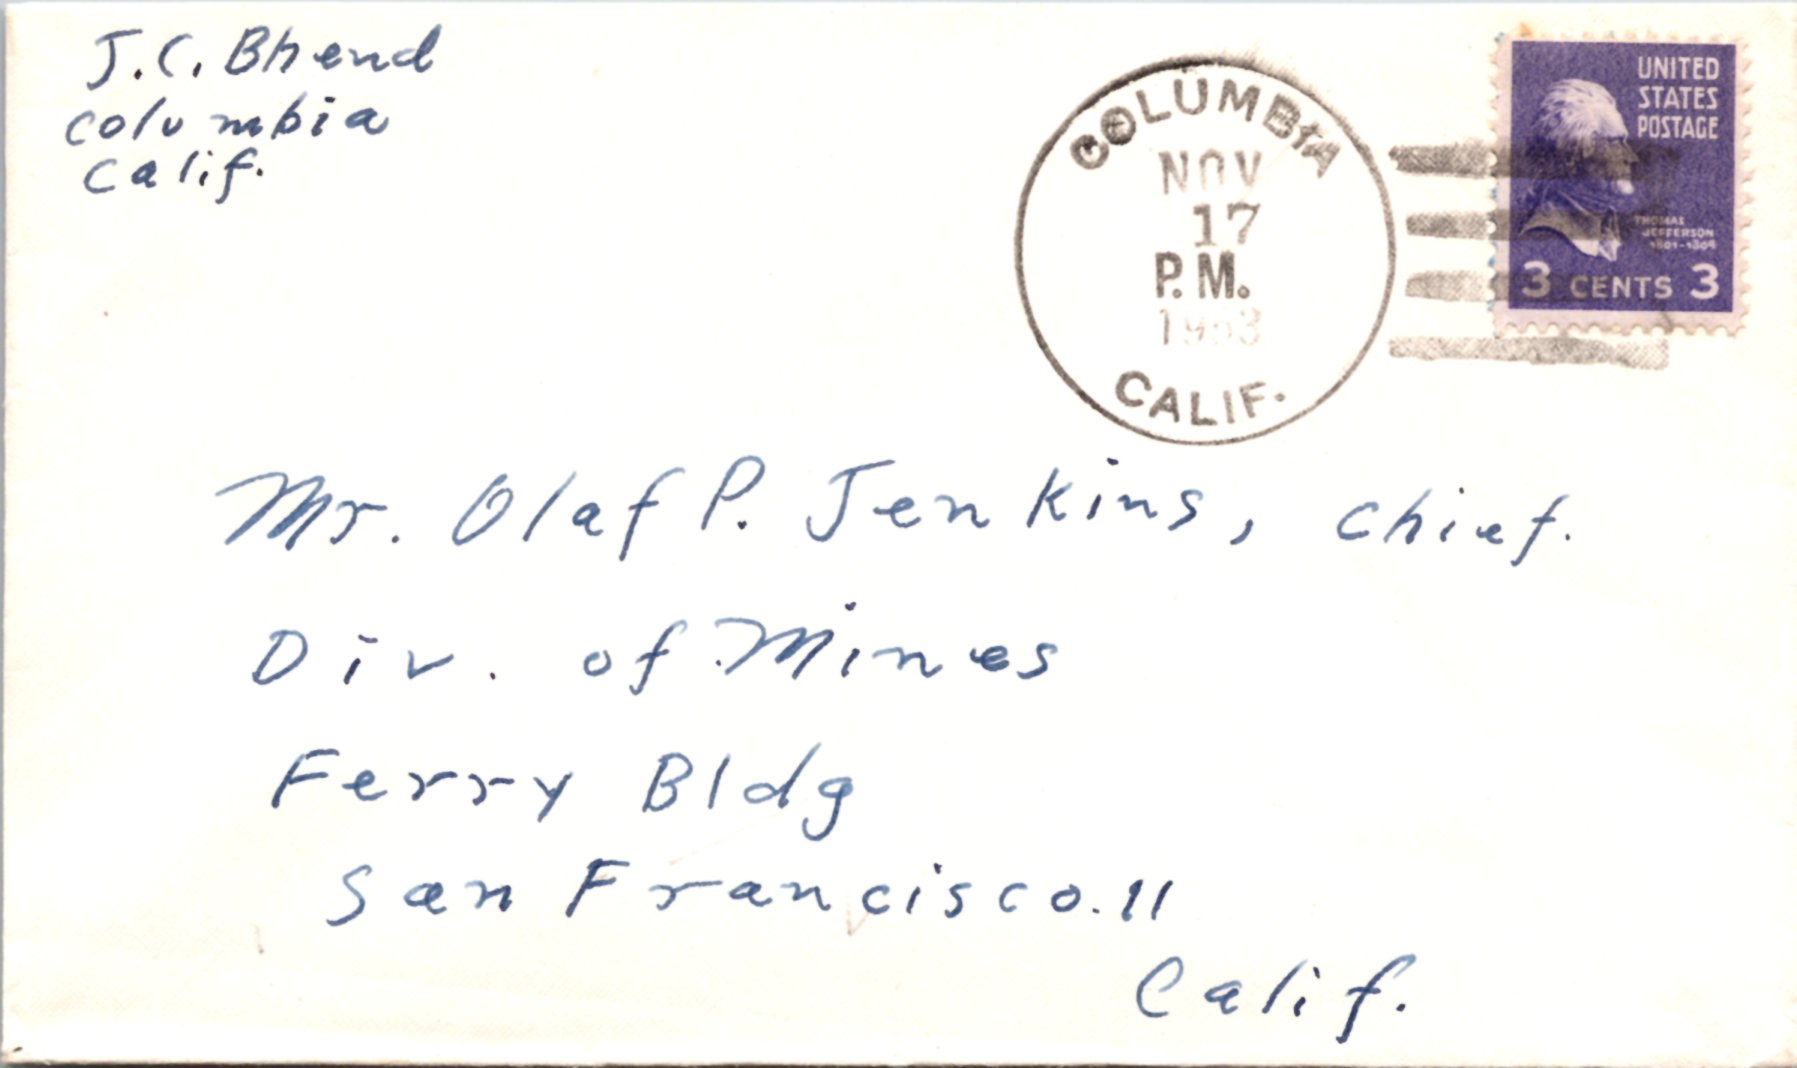 J.C. Bhend
Columbia
Calif.
COLUMBIA
NOV
17
P.M.
1953
CALIF.
UNITED
STATES
POSTAGE
THOMAS
JEFFERSON
1801-1809
3 CENTS 3
Mr. Olaf P. Jenkins, Chief.
Div. of Mines
Ferry Bldg
San Francisco. 11
Calif.